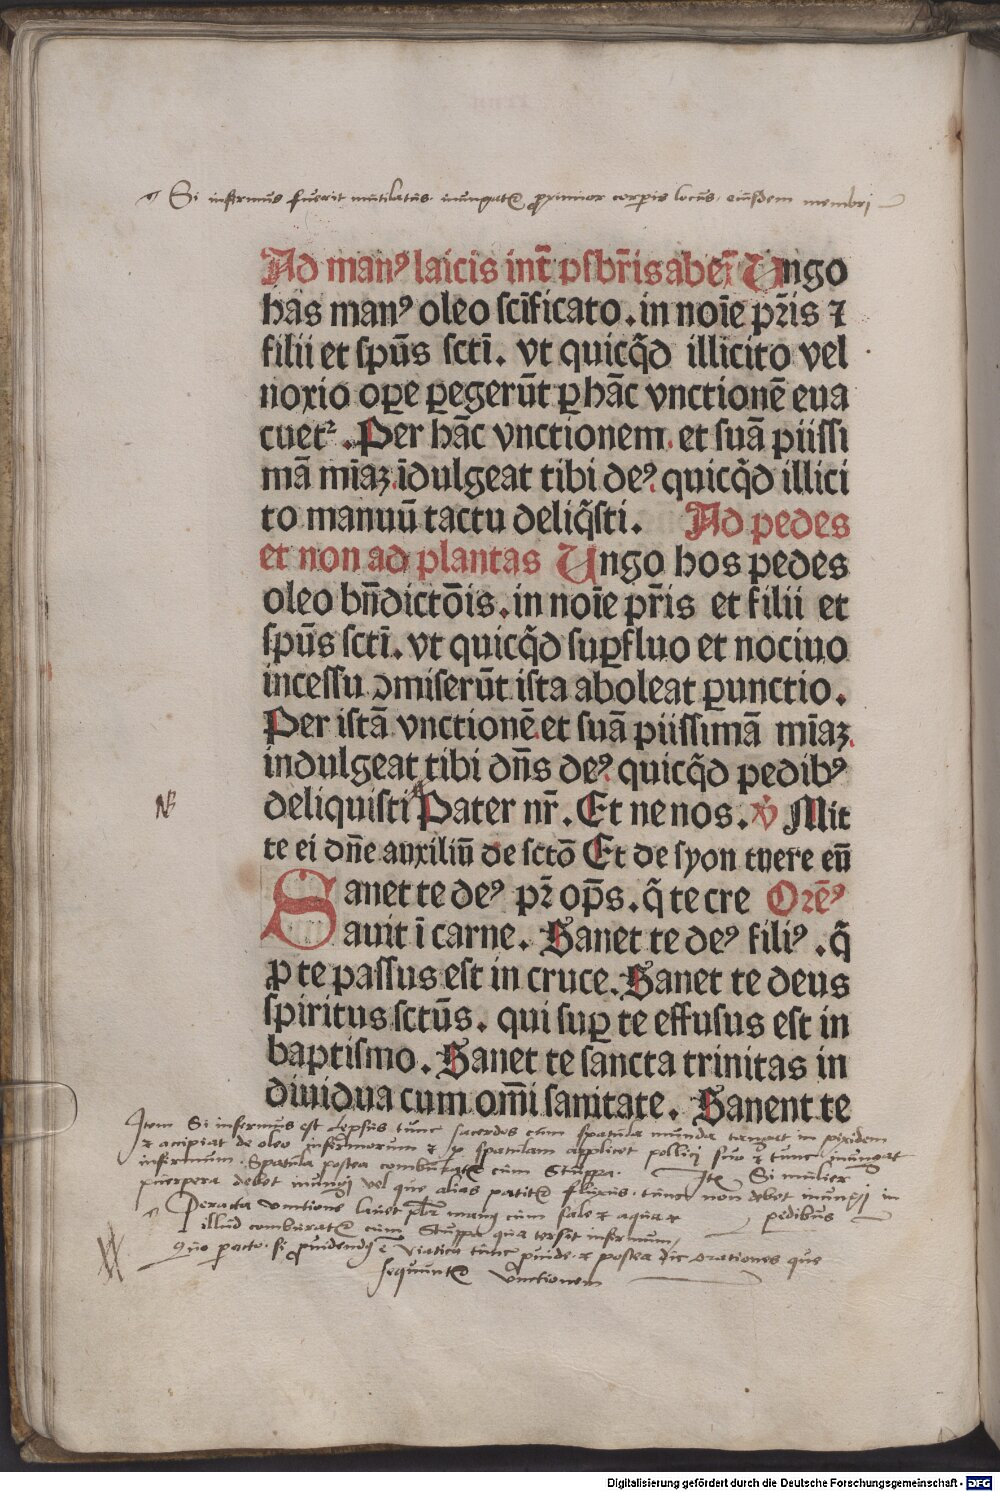 Si infirmus fuerit mutilatus. inungatʳ proximior corporis locus. eiusdem membri
Ad manꝰ laicis int̄ psbr̄is aber̄ Ungo
has manꝰ oleo scīficato. in noīe pr̄is ⁊
filii et spūs sctī. vt quicq̄d illicito vel
noxio oꝑe ꝑegerūt ꝑ hāc vnctionē eua
cuetᷣ. Per hāc vnctionem et suā piissi
mā mīaꝫ īdulgeat tibi deꝰ quicq̄d illici
to manuū tactu deliq̄sti. Ad pedes
et non ad plantas Ungo hos pedes
oleo bn̄dictōis. in noīe pr̄is et filii et
spūs sctī. vt quicq̄d suꝑfluo et nociuo
incessu ↄmiserūt ista aboleat ꝑunctio.
Per istā vnctionē et suā piissimā mīaꝫ
indulgeat tibi dn̄s deꝰ quicq̄d pedibꝰ
deliquisti Pater nr̄. Et ne nos. ℣ Mit
NB
te ei dn̄e auxiliū de sctō Et de syon tuere eū
Sanet te deꝰ pr̄ op̄s. q̄ te cre Orēꝰ
auit ī carne. Sanet te deꝰ filiꝰ. q̄
ꝓ te passus est in cruce. Sanet te deus
spiritus sctūs. qui suꝑ te effusus est in
baptismo. Sanet te sancta trinitas in
diuidua cum om̄i sanitate. Sanent te
Item Si infirmus est Leprus tunc sacerdos cum spatula munda tangat in pixidem
⁊ accipiat de oleo infirmorum ⁊ ꝑ spatulam applicet pollici suo ⁊ tunc inungat
infirmum. Spatula postea comburatʳ cum Stuppa. Itē Si mulier
puerpera debet inungi vel que alias patitʳ fluxus. tunc non debet inungi in
pedibus
Peracta unctione lauet pbr̄ manꝰ cum sale ⁊ aqua ⁊
illud comburatʳ cum Stuppa qua tersit infirmum,
Quo facto. si prouidendꝰ ē viatico tunc prouide. ⁊ postea dic orationes que
sequuntʳ Vnctionem